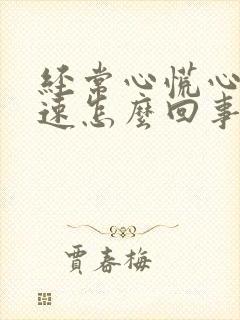 经常心慌心
速怎麼回事
賈春梅